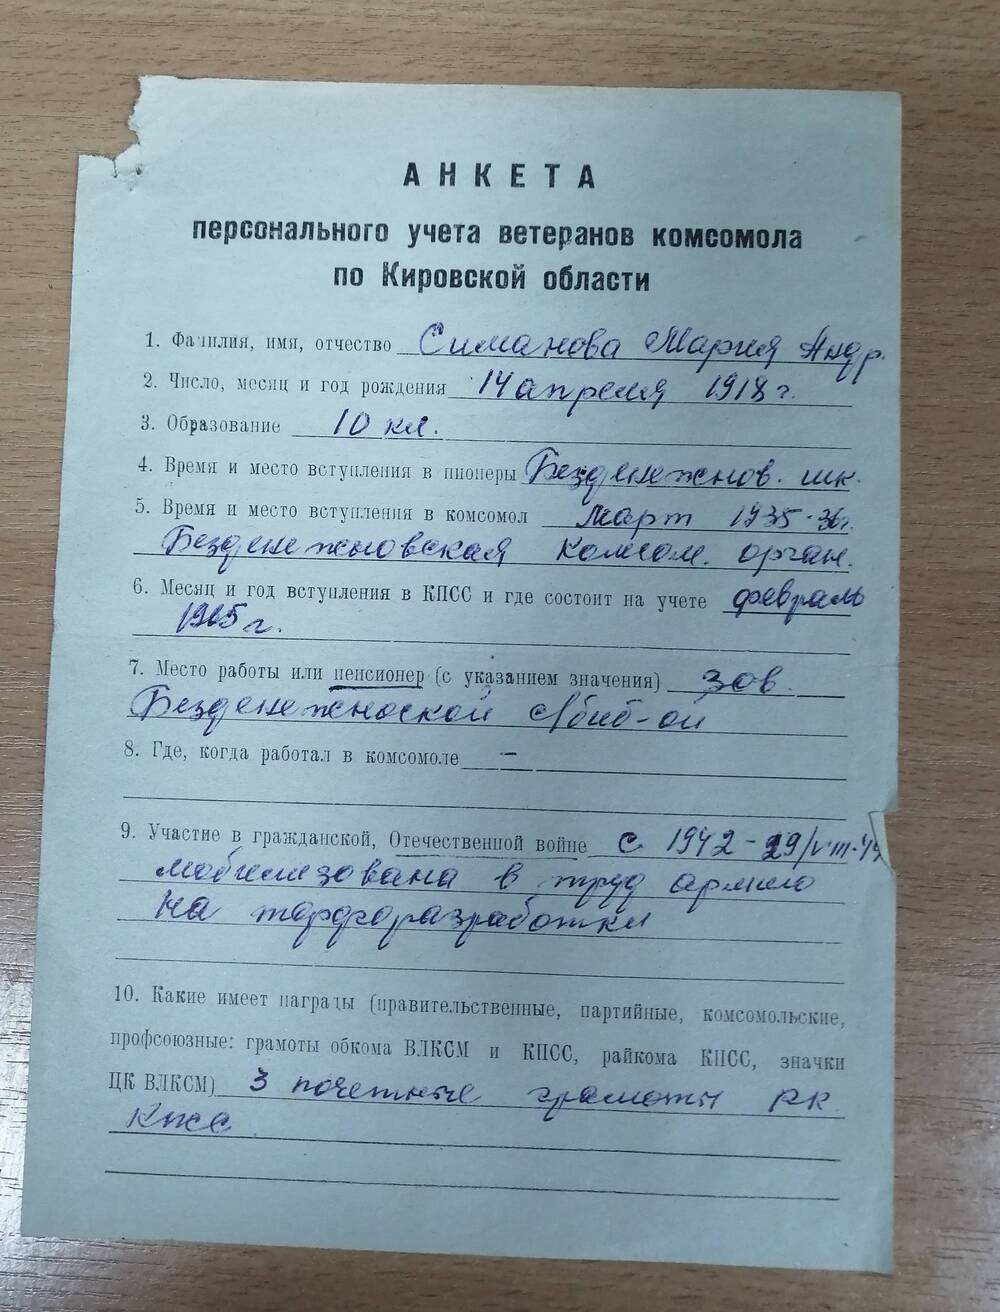 АНКЕТА
персонального учета ветеранов комсомола
по Кировской области
1. Фамилия, имя, отчество Симанова Мария Андр.
2. Число, месяц и год рождения 14 апреля 1918 г.
3. Образование 10 кл.
4. Время и место вступления в пионеры Безденежнов. шк.
5. Время и место вступления в комсомол Март 1935-36г.
Безденежновская комсом. орган.
6. Месяц и год вступления в КПСС и где состоит на учете февраль
г.
7. Место работы или пенсионер (с указанием значения) зав.
Безденежноской с/биб-ой
8. Где, когда работал в комсомоле –
9. Участие в гражданской, Отечественной войне с 1942 - 29/VIII-
мобилизована в труд армию
на торфоразработки
10. Какие имеет награды (правительственные, партийные, комсомольские,
профсоюзные: грамоты обкома ВЛКСМ и КПСС, райкома КПСС, значки
ЦК ВЛКСМ) 3 почетные грамоты РК
КПСС